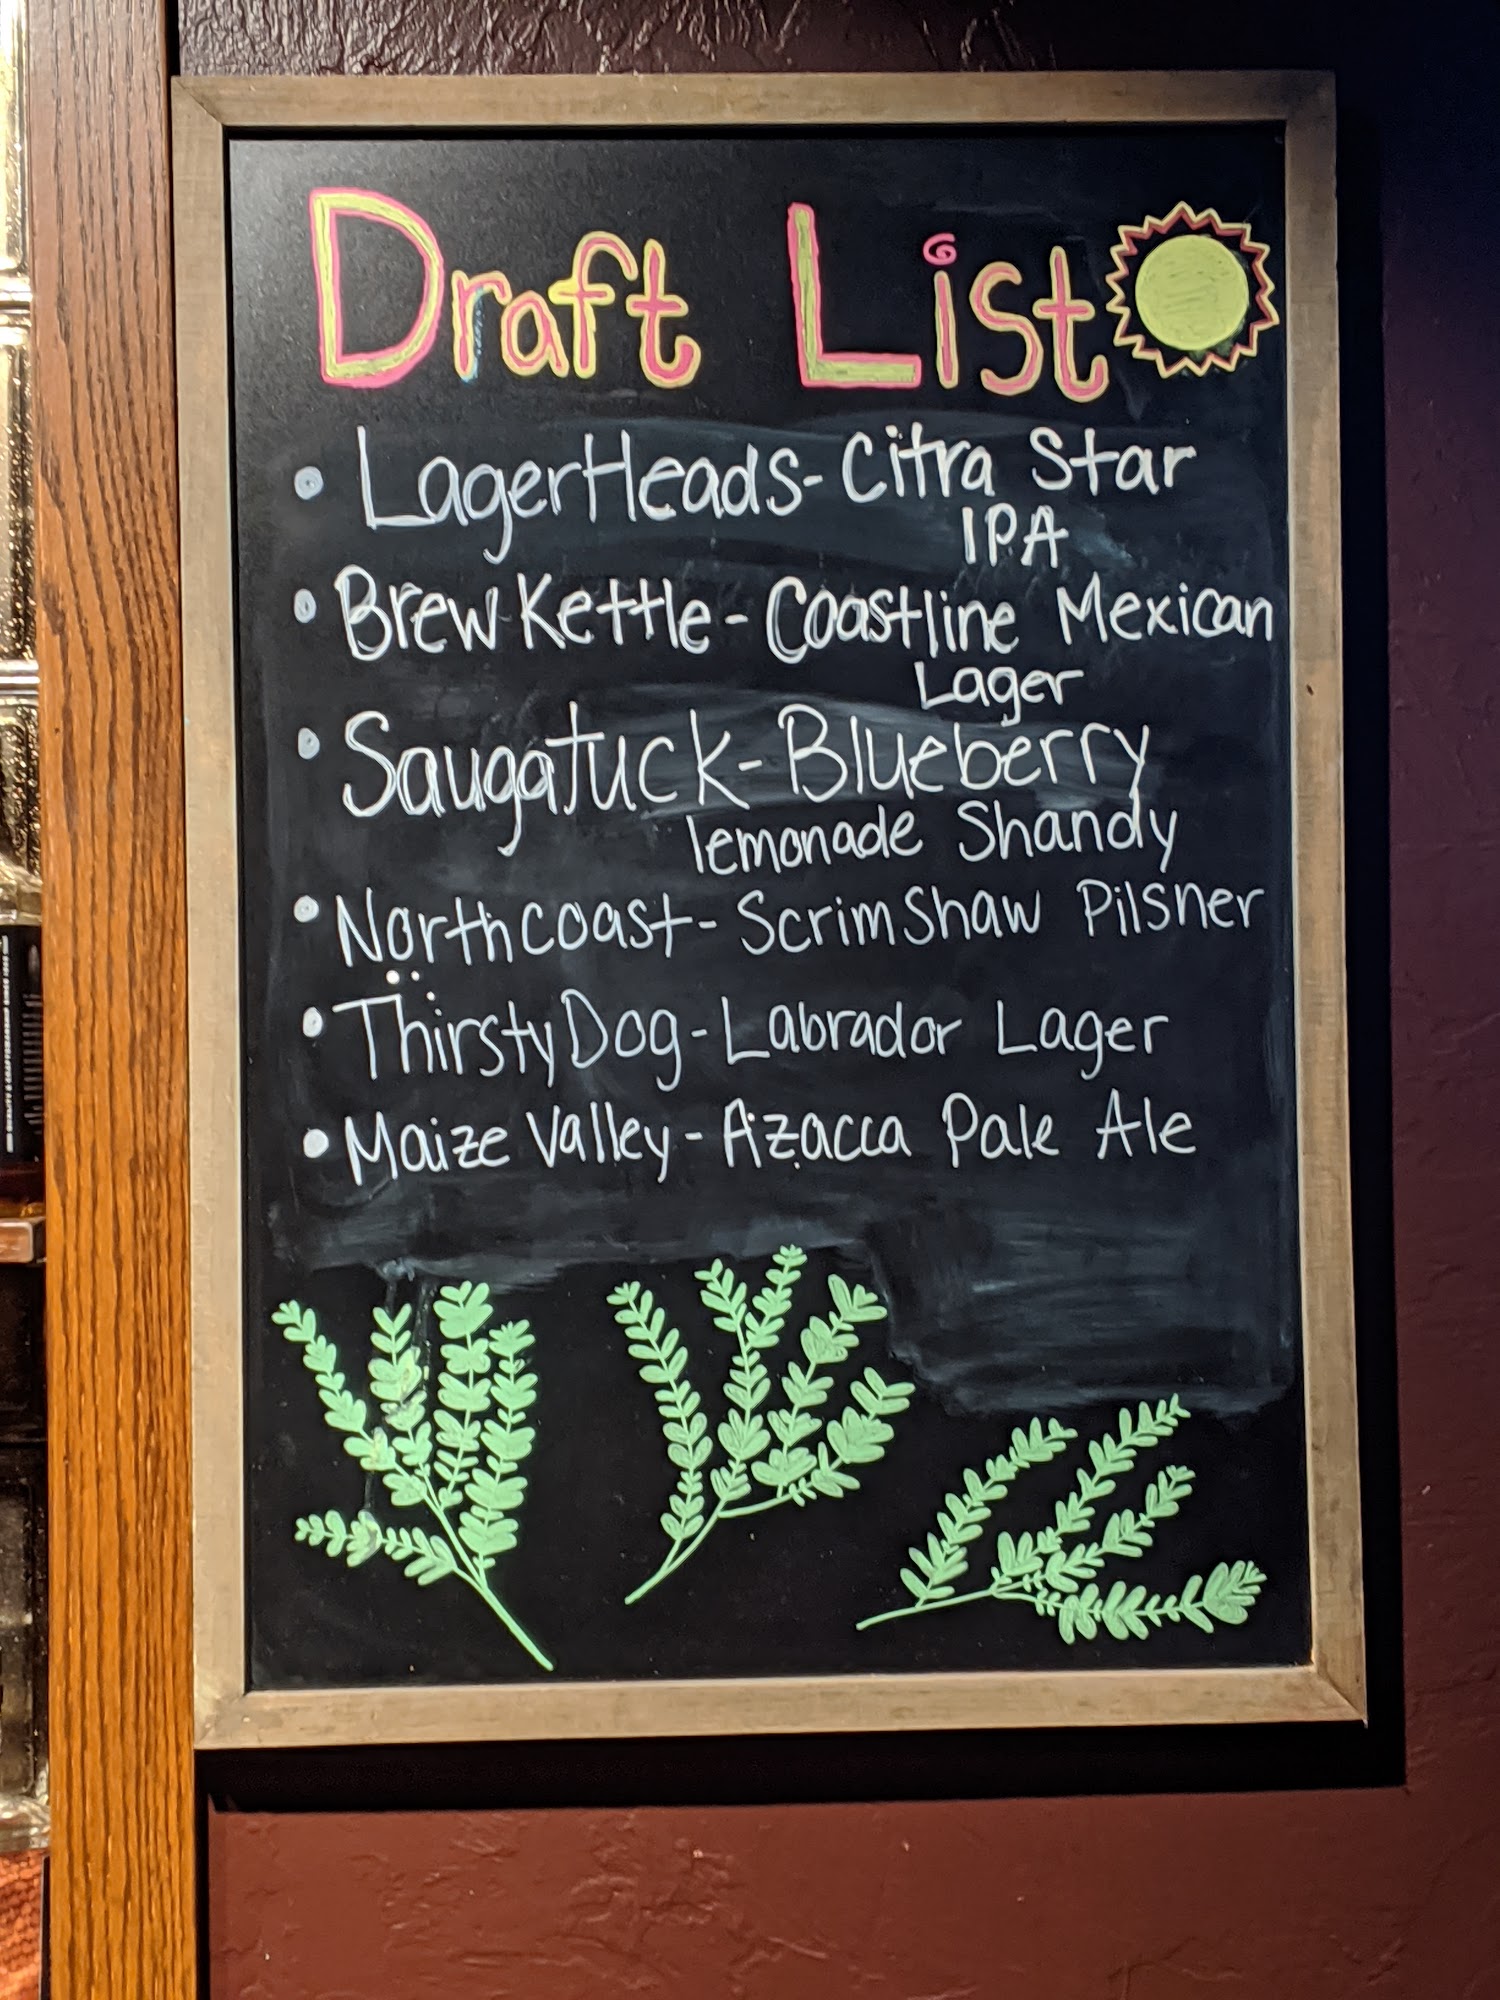 Draft List
• LagerHeads - Citra Star
IPA
• Brew Kettle - Coastline Mexican
Lager
• Saugatuck - Blueberry
lemonade Shandy
• North coast - Scrimshaw Pilsner
• Thirsty Dog - Labrador Lager
• Maize Valley - Azacca Pale Ale